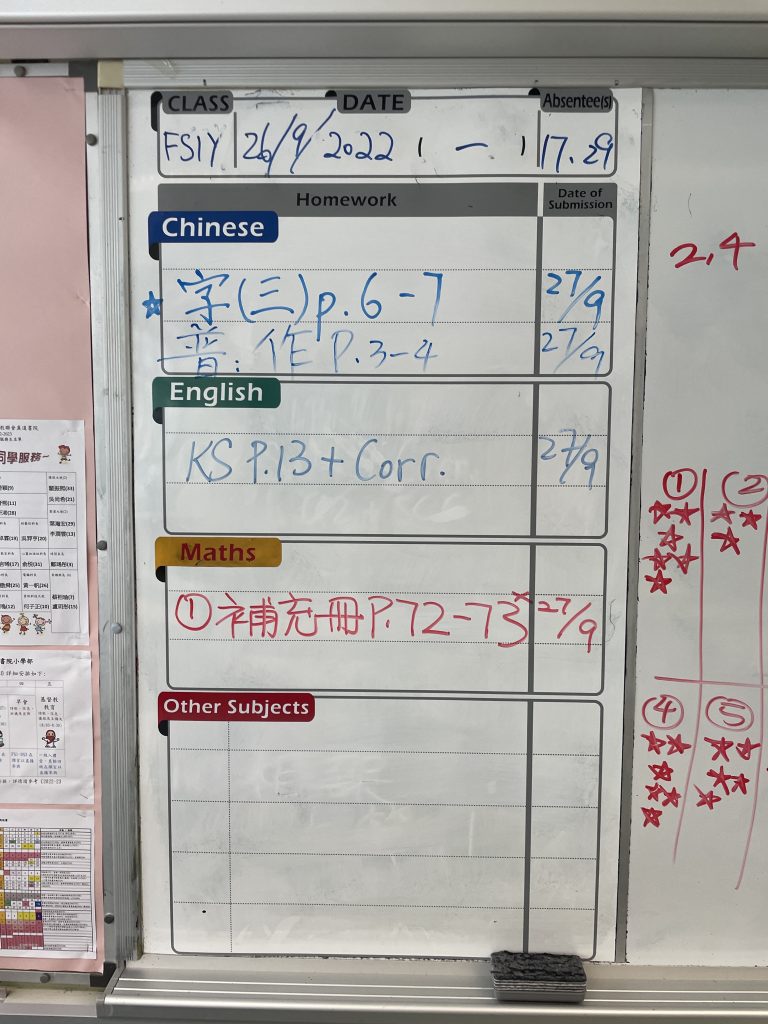 CLASS DATE Absentee(s)
FS1Y 26/9/2022 ( 一 ) 17.29
Homework Date of Submission
Chinese
☆ 字(三)p.6-7 27/9
普:作 P.3-4 27/9
English
KS P.13 + Corr. 27/9
Maths
① 補充冊 P.72-73* 27/9
Other Subjects
2,4
① ②
④ ⑤
同學服務~
書院小學部
早會
基督教教育